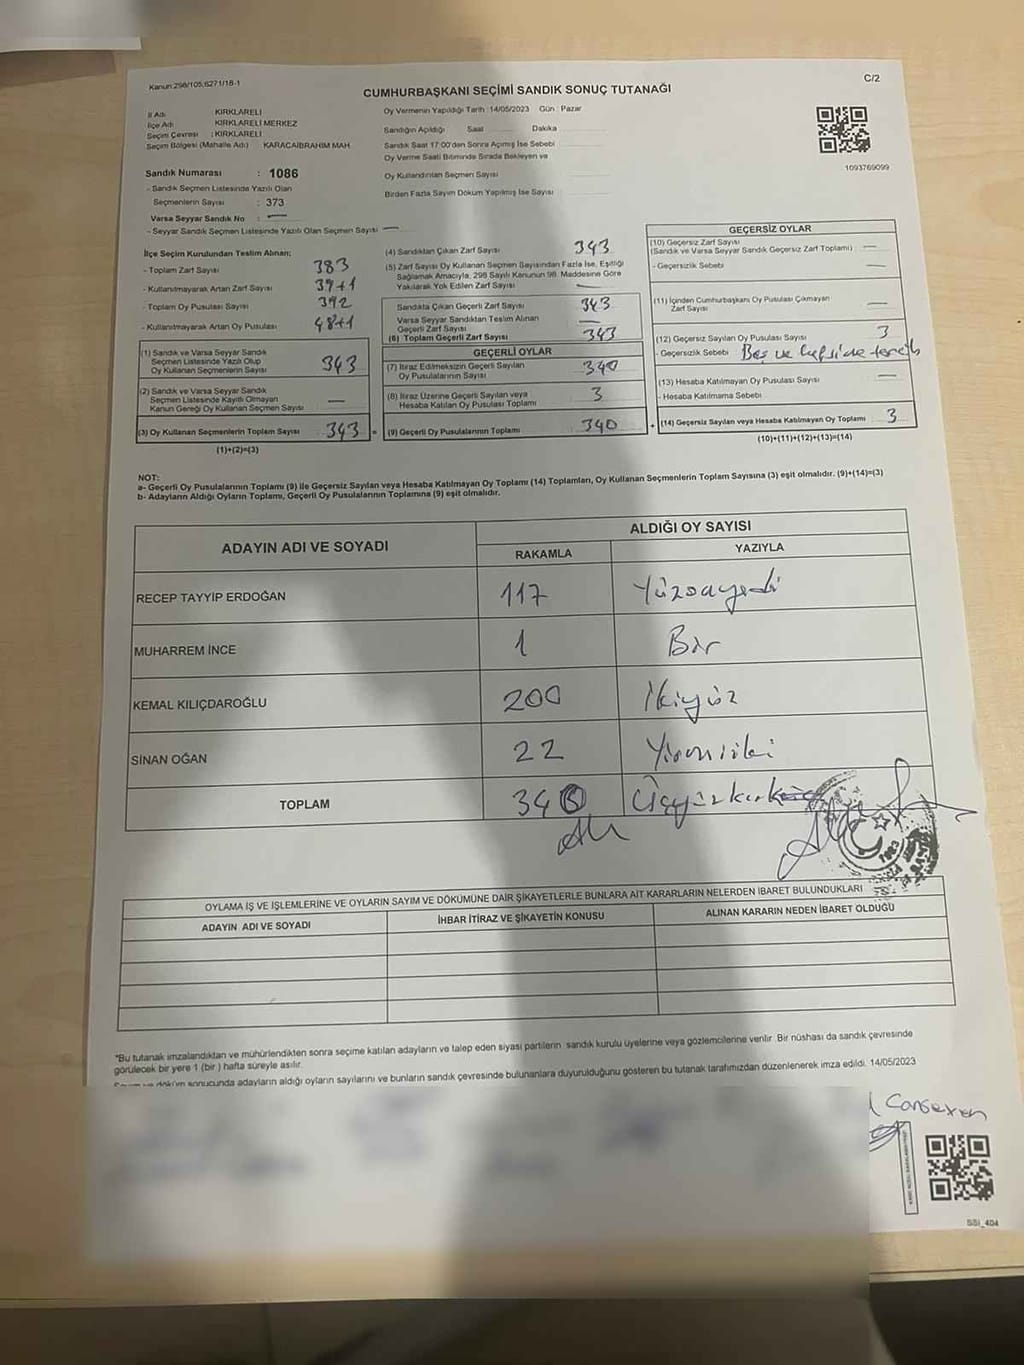 Kanun:298/105;6271/18-1
C/2
CUMHURBAŞKANI SEÇİMİ SANDIK SONUÇ TUTANAĞI
İl Adı : KIRKLARELİ
İlçe Adı : KIRKLARELİ MERKEZ
Seçim Çevresi : KIRKLARELİ
Seçim Bölgesi (Mahalle Adı) KARACAİBRAHİM MAH
Sandık Numarası : 1086
- Sandık Seçmen Listesinde Yazılı Olan
Seçmenlerin Sayısı : 373
Varsa Seyyar Sandık No : —
- Seyyar Sandık Seçmen Listesinde Yazılı Olan Seçmen Sayısı —
Oy Vermenin Yapıldığı Tarih : 14/05/2023 Gün : Pazar
Sandığın Açıldığı Saat Dakika
Sandık Saat 17:00'den Sonra Açımış İse Sebebi
Oy Verme Saati Bitiminde Sırada Bekleyen ve
Oy Kullandırılan Seçmen Sayısı
Birden Fazla Sayım Döküm Yapılmış İse Sayısı
1093769099
İlçe Seçim Kurulundan Teslim Alınan;
- Toplam Zarf Sayısı 383
- Kullanılmayarak Artan Zarf Sayısı 39+1
- Toplam Oy Pusulası Sayısı 392
- Kullanılmayarak Artan Oy Pusulası 48+1
(1) Sandık ve Varsa Seyyar Sandık
Seçmen Listesinde Yazılı Olup
Oy Kullanan Seçmenlerin Sayısı 343
(2) Sandık ve Varsa Seyyar Sandık
Seçmen Listesinde Kayıtlı Olmayan
Kanun Gereği Oy Kullanan Seçmen Sayısı —
(3) Oy Kullanan Seçmenlerin Toplam Sayısı 343
(1)+(2)=(3)
(4) Sandıktan Çıkan Zarf Sayısı 343
(5) Zarf Sayısı Oy Kullanan Seçmen Sayısından Fazla İse, Eşitliği
Sağlamak Amacıyla, 298 Sayılı Kanunun 98. Maddesine Göre
Yakılarak Yok Edilen Zarf Sayısı —
Sandıkta Çıkan Geçerli Zarf Sayısı 343
Varsa Seyyar Sandıktan Teslim Alınan
Geçerli Zarf Sayısı —
(6) Toplam Geçerli Zarf Sayısı 343
GEÇERLİ OYLAR
(7) İtiraz Edilmeksizin Geçerli Sayılan
Oy Pusulalarının Sayısı 340
(8) İtiraz Üzerine Geçerli Sayılan veya
Hesaba Katılan Oy Pusulası Toplamı 3
= (9) Geçerli Oy Pusulalarının Toplamı 340
GEÇERSİZ OYLAR
(10) Geçersiz Zarf Sayısı
(Sandık ve Varsa Seyyar Sandık Geçersiz Zarf Toplamı) —
- Geçersizlik Sebebi —
(11) İçinden Cumhurbaşkanı Oy Pusulası Çıkmayan
Zarf Sayısı —
(12) Geçersiz Sayılan Oy Pusulası Sayısı 3
- Geçersizlik Sebebi Boş ve hepside tercih
(13) Hesaba Katılmayan Oy Pusulası Sayısı —
- Hesaba Katılmama Sebebi
+ (14) Geçersiz Sayılan veya Hesaba Katılmayan Oy Toplamı 3
(10)+(11)+(12)+(13)=(14)
NOT:
a- Geçerli Oy Pusulalarının Toplamı (9) ile Geçersiz Sayılan veya Hesaba Katılmayan Oy Toplamı (14) Toplamları, Oy Kullanan Seçmenlerin Toplam Sayısına (3) eşit olmalıdır. (9)+(14)=(3)
b- Adayların Aldığı Oyların Toplamı, Geçerli Oy Pusulalarının Toplamına (9) eşit olmalıdır.
ADAYIN ADI VE SOYADI
ALDIĞI OY SAYISI
RAKAMLA YAZIYLA
RECEP TAYYİP ERDOĞAN 117 Yüzonyedi
MUHARREM İNCE 1 Bir
KEMAL KILIÇDAROĞLU 200 İkiyüz
SİNAN OĞAN 22 Yirmiiki
TOPLAM 340 Üçyüzkırk
OYLAMA İŞ VE İŞLEMLERİNE VE OYLARIN SAYIM VE DÖKÜMÜNE DAİR ŞİKAYETLERLE BUNLARA AİT KARARLARIN NELERDEN İBARET BULUNDUKLARI
ADAYIN ADI VE SOYADI İHBAR İTİRAZ VE ŞİKAYETİN KONUSU ALINAN KARARIN NEDEN İBARET OLDUĞU
*Bu tutanak imzalandıktan ve mühürlendikten sonra seçime katılan adayların ve talep eden siyasi partilerin sandık kurulu üyelerine veya gözlemcilerine verilir. Bir nüshası da sandık çevresinde
görülecek bir yere 1 (bir) hafta süreyle asılır.
Sayım ve döküm sonucunda adayların aldığı oyların sayılarını ve bunların sandık çevresinde bulunanlara duyurulduğunu gösteren bu tutanak tarafımızdan düzenlenerek imza edildi. 14/05/2023
SSI_404